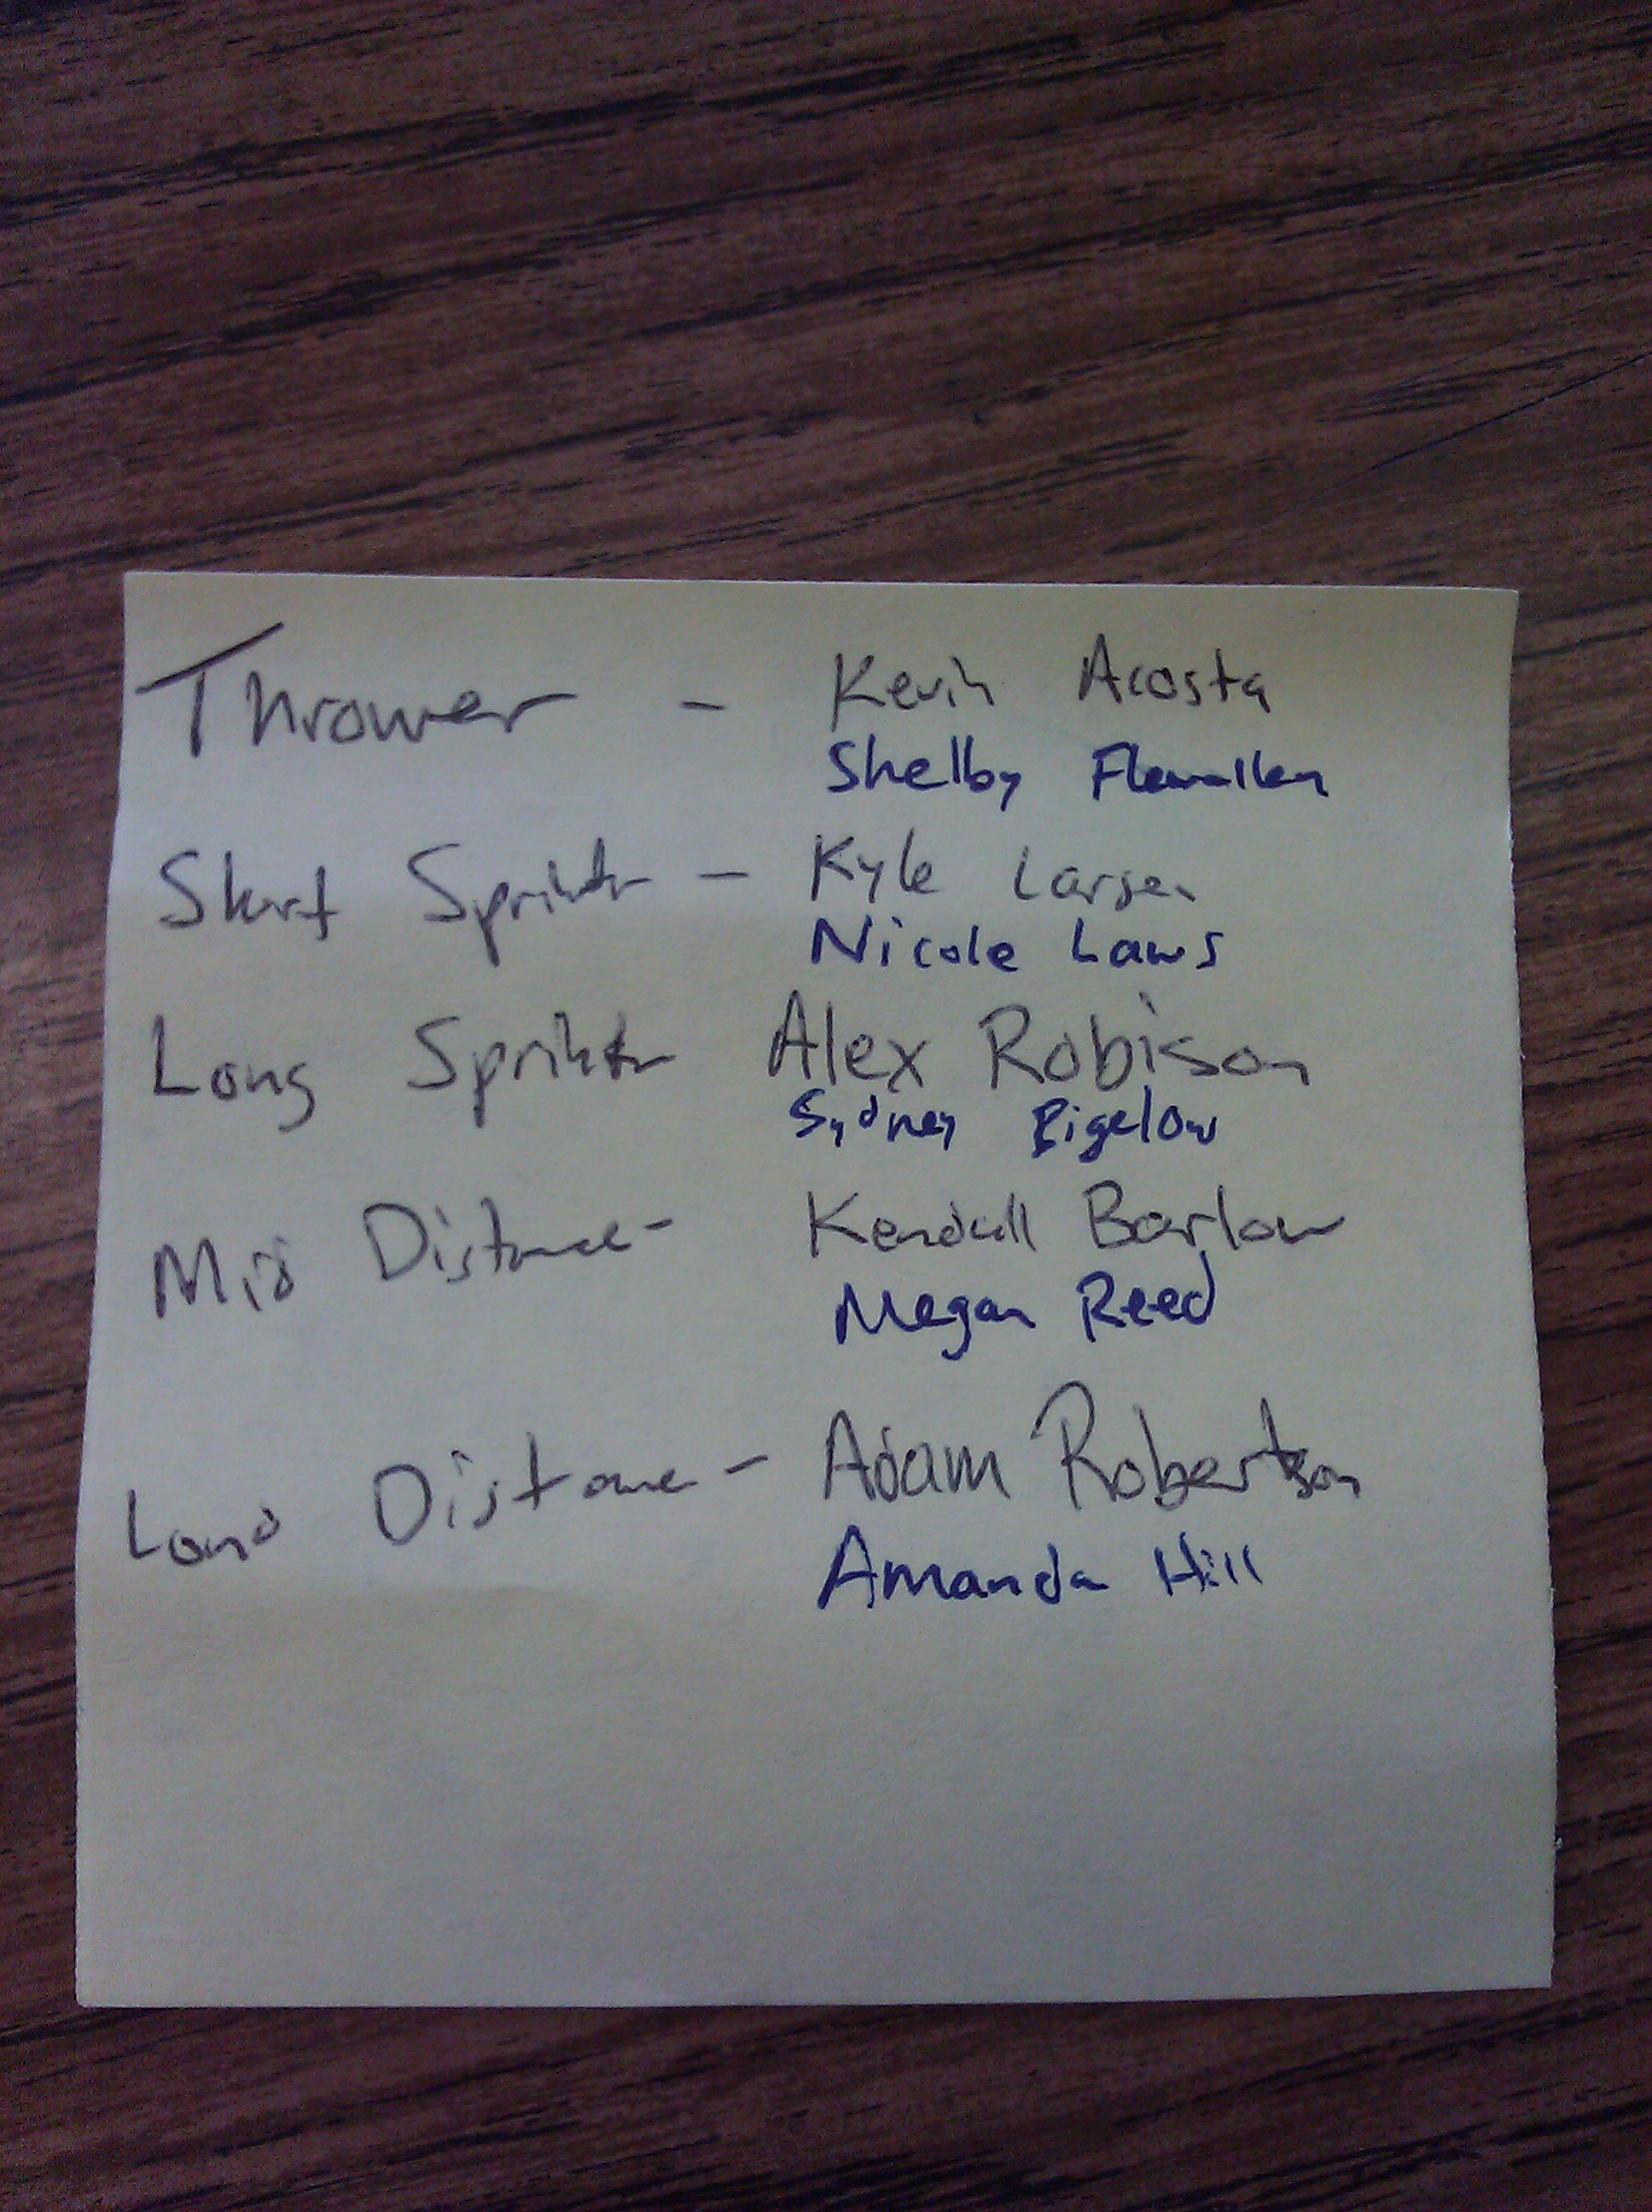 Thrower - Kevin Acosta
Shelby Flewallen
Short Sprinter - Kyle Larsen
Nicole Laws
Long Sprinter Alex Robison
Sydney Bigelow
Mid Distance - Kendall Barlow
Megan Reed
Long Distance - Adam Robertson
Amanda Hill